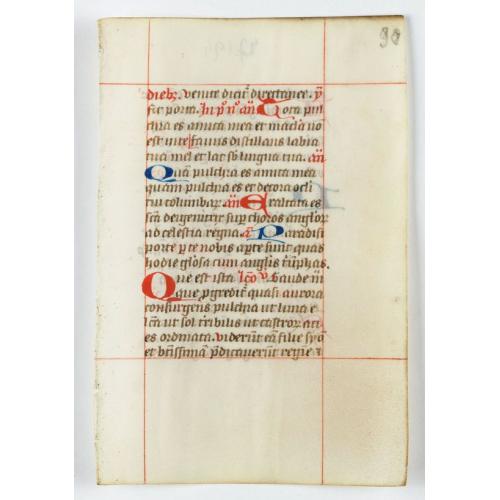 90
dieb9. venite dicit directance. ꝟ
fac porta. In p° n° añ Tota pul
chra es amica mea et macla nō
est inte favus distillans labia
tua mel et lac sb lingua tua. añ
Quā pulchra es amica mea
quam pulchra es et decora ocli
tui columbar. añ Exaltata es
scā dei genitrix sup choros anglor
ad celestia regna. a Paradisi
porte p te nobis apte sunt quas
hodie glosa cum anglis triūphas.
Que est ista lcō v. Gaude m
Que pgredit quasi aurora
consurgens pulchra ut luna e
lcā ut sol tribilis ut castror aci
es ordinata. viderūt eā filie syō
et btissimā pdicaverūt regine ⁊